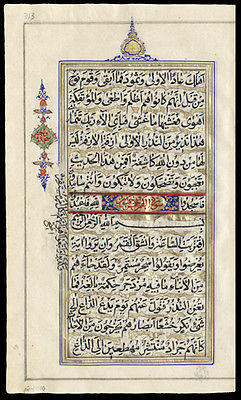 ٢١٣
اهلك عادا الاولى وثمود فما ابقى وقوم نوح
من قبل انهم كانوا هم اظلم واطغى والمؤتفكة
اهوى فغشيها ما غشى فباي الاء ربك تتمارى
هذا نذير من النذر الاولى ازفت الازفة ليس لها
من دون الله كاشفة افمن هذا الحديث
تعجبون وتضحكون ولا تبكون وانتم سامدون
فاسجدوا
بسم الله الرحمن الرحيم
اقتربت الساعة وانشق القمر وان يروا اية
يعرضوا ويقولوا سحر مستمر ولقد جاءهم
من الانباء ما فيه مزدجر حكمة بالغة فما
تغن النذر فتول عنهم يوم يدع الداع الى
شيء نكر خشعا ابصارهم يخرجون من الاجداث
كانهم جراد منتشر مهطعين الى الداع